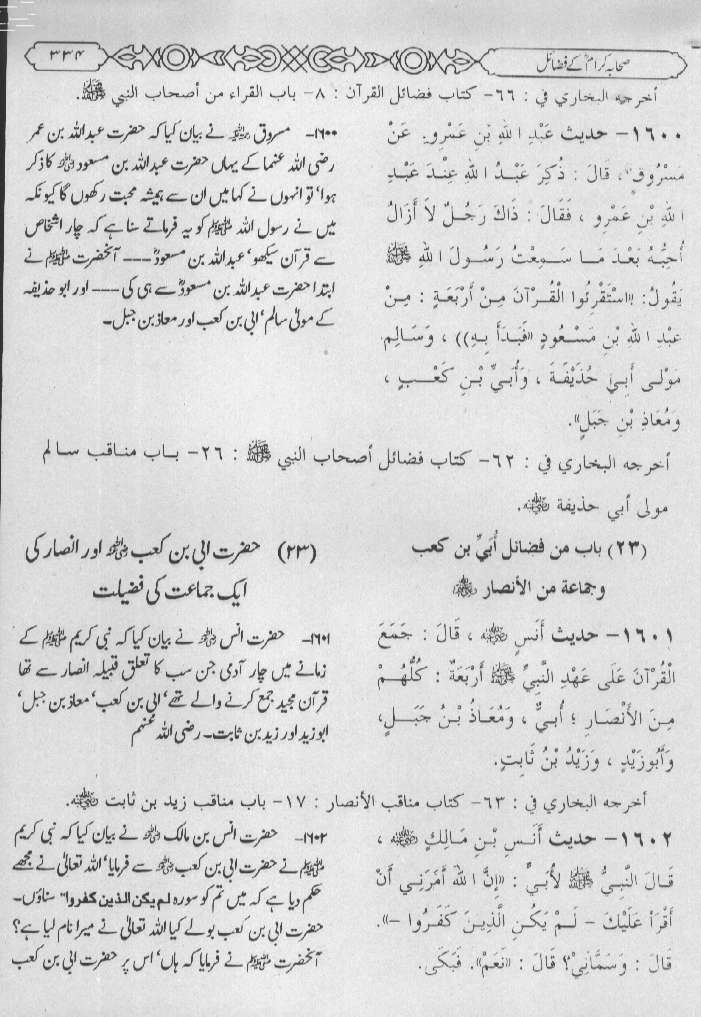 صحابہ کرامؓ کے فضائل
۳۳۴
أخرجه البخاري في : ٦٦- كتاب فضائل القرآن : ٨- باب القراء من أصحاب النبي ﷺ.
١٦٠٠- حديث عَبْدِ اللهِ بْنِ عَمْرٍو. عَنْ
مَسْرُوقٍ، قَالَ : ذُكِرَ عَبْدُ اللهِ عِنْدَ عَبْدِ
اللهِ بْنِ عَمْرٍو ، فَقَالَ : ذَاكَ رَجُلٌ لاَ أَزَالُ
أُحِبُّهُ بَعْدَ مَا سَمِعْتُ رَسُولَ اللهِ ﷺ
يَقُولُ: «اسْتَقْرِئُوا الْقُرْآنَ مِنْ أَرْبَعَةٍ : مِنْ
عَبْدِ اللهِ بْنِ مَسْعُودٍ «فَبَدَأَ بِهِ)) ، وَسَالِمٍ
مَوْلَى أَبِي حُذَيْفَةَ ، وَأُبَيِّ بْنِ كَعْبٍ ،
وَمُعَاذِ بْنِ جَبَلٍ».
۱۶۰۰- مسروق رحمہ اللہ نے بیان کیا کہ حضرت عبداللہ بن عمر
رضی اللہ عنما کے یہاں حضرت عبداللہ بن مسعود رضی اللہ عنہ کا ذکر
ہوا' تو انہوں نے کہا میں ان سے ہمیشہ محبت رکھوں گا کیونکہ
میں نے رسول اللہ ﷺ کو یہ فرماتے سنا ہے کہ چار اشخاص
سے قرآن سیکھو' عبداللہ بن مسعودؓ ---- آنحضرت ﷺ نے
ابتدا حضرت عبداللہ بن مسعودؓ سے ہی کی ---- اور ابو حذیفہ
کے مولیٰ سالم' ابی بن کعب اور معاذ بن جبل۔
أخرجه البخاري في : ٦٢- كتاب فضائل أصحاب النبي ﷺ : ٢٦- باب مناقب سالم
مولى أبي حذيفة رضی اللہ عنہ.
(٢٣) باب من فضائل أُبَيِّ بن كعب
وجماعة من الأنصار رضی اللہ عنہم
(۲۳) حضرت ابی بن کعب رضی اللہ عنہ اور انصار کی
ایک جماعت کی فضیلت
١٦٠١- حديث أَنَسٍ رضی اللہ عنہ ، قَالَ : جَمَعَ
الْقُرْآنَ عَلَى عَهْدِ النَّبِيِّ ﷺ أَرْبَعَةٌ : كُلُّهُمْ
مِنَ الأَنْصَارِ ؛ أُبيٌّ ، وَمُعَاذُ بْنُ جَبَلٍ،
وَأَبُوزَيْدٍ ، وَزَيْدُ بْنُ ثَابِتٍ.
۱۶۰۱- حضرت انس رضی اللہ عنہ نے بیان کیا کہ نبی کریم ﷺ کے
زمانے میں چار آدمی جن سب کا تعلق قبیلہ انصار سے تھا
قرآن مجید جمع کرنے والے تھے' ابی بن کعب' معاذ بن جبل'
ابوزید اور زید بن ثابت۔ رضی اللہ عنہم
أخرجه البخاري في : ٦٣- كتاب مناقب الأنصار : ١٧- باب مناقب زيد بن ثابت رضی اللہ عنہ.
١٦٠٢- حديث أَنَسِ بْنِ مَالِكٍ رضی اللہ عنہ ،
قَالَ النَّبِيُّ ﷺ لأُبَيٍّ : «إِنَّ اللهَ أَمَرَنِي أَنْ
أَقْرَأَ عَلَيْكَ - لَمْ يَكُنِ الَّذِينَ كَفَرُوا -».
قَالَ : وَسَمَّانِي؟ قَالَ : «نَعَمْ». فَبَكَى.
۱۶۰۲- حضرت انس بن مالک رضی اللہ عنہ نے بیان کیا کہ نبی کریم
ﷺ نے حضرت ابی بن کعب رضی اللہ عنہ سے فرمایا' اللہ تعالیٰ نے مجھے
حکم دیا ہے کہ میں تم کو سورہ لم یکن الذین کفروا" سناؤں۔
حضرت ابی بن کعب بولے کیا اللہ تعالیٰ نے میرا نام لیا ہے؟
آنحضرت ﷺ نے فرمایا کہ ہاں' اس پر حضرت ابی بن کعب